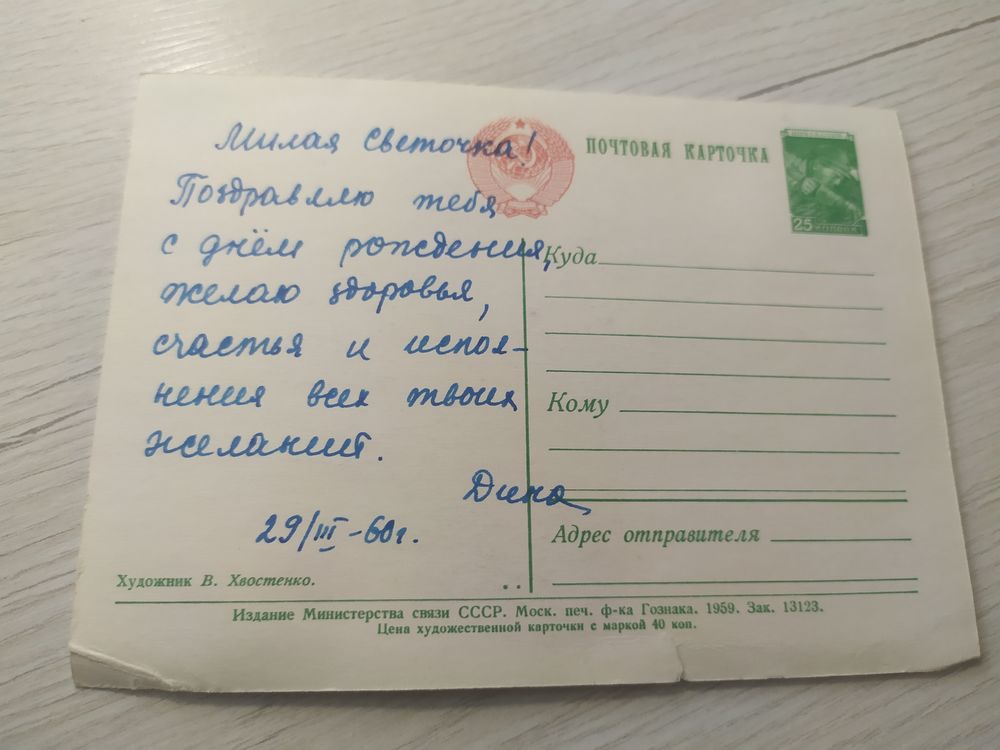 Милая Светочка!
Поздравляю тебя
с днём рождения,
желаю здоровья,
счастья и испол-
нения всех твоих
желаний.
Дина
29/III-60г.
Художник В. Хвостенко.
ПОЧТОВАЯ КАРТОЧКА
25 КОПЕЕК
Куда
Кому
Адрес отправителя
Издание Министерства связи СССР. Моск. печ. ф-ка Гознака. 1959. Зак. 13123.
Цена художественной карточки с маркой 40 коп.